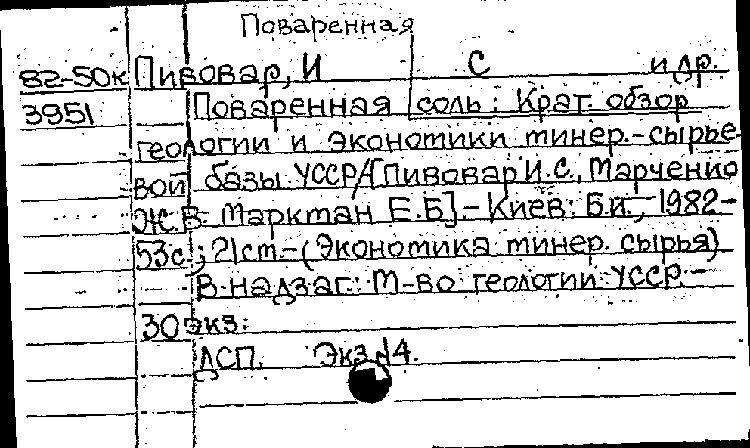 Поваренная
82-50к Пивовар, И С и др.
3951 Поваренная соль: Крат. обзор
геологии и экономики минер.-сырье-
вой базы УССР/[Пивовар И.С., Марченко
Ж.В. Марктан Е.Б].- Киев: Б.и., 1982-
53с.; 21см.-(Экономика минер. сырья)
В надзаг: М-во геологии УССР.-
30 экз.
ДСП. Экз.№4.